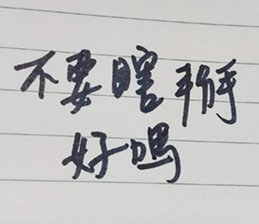 不要瞎掰
好吗